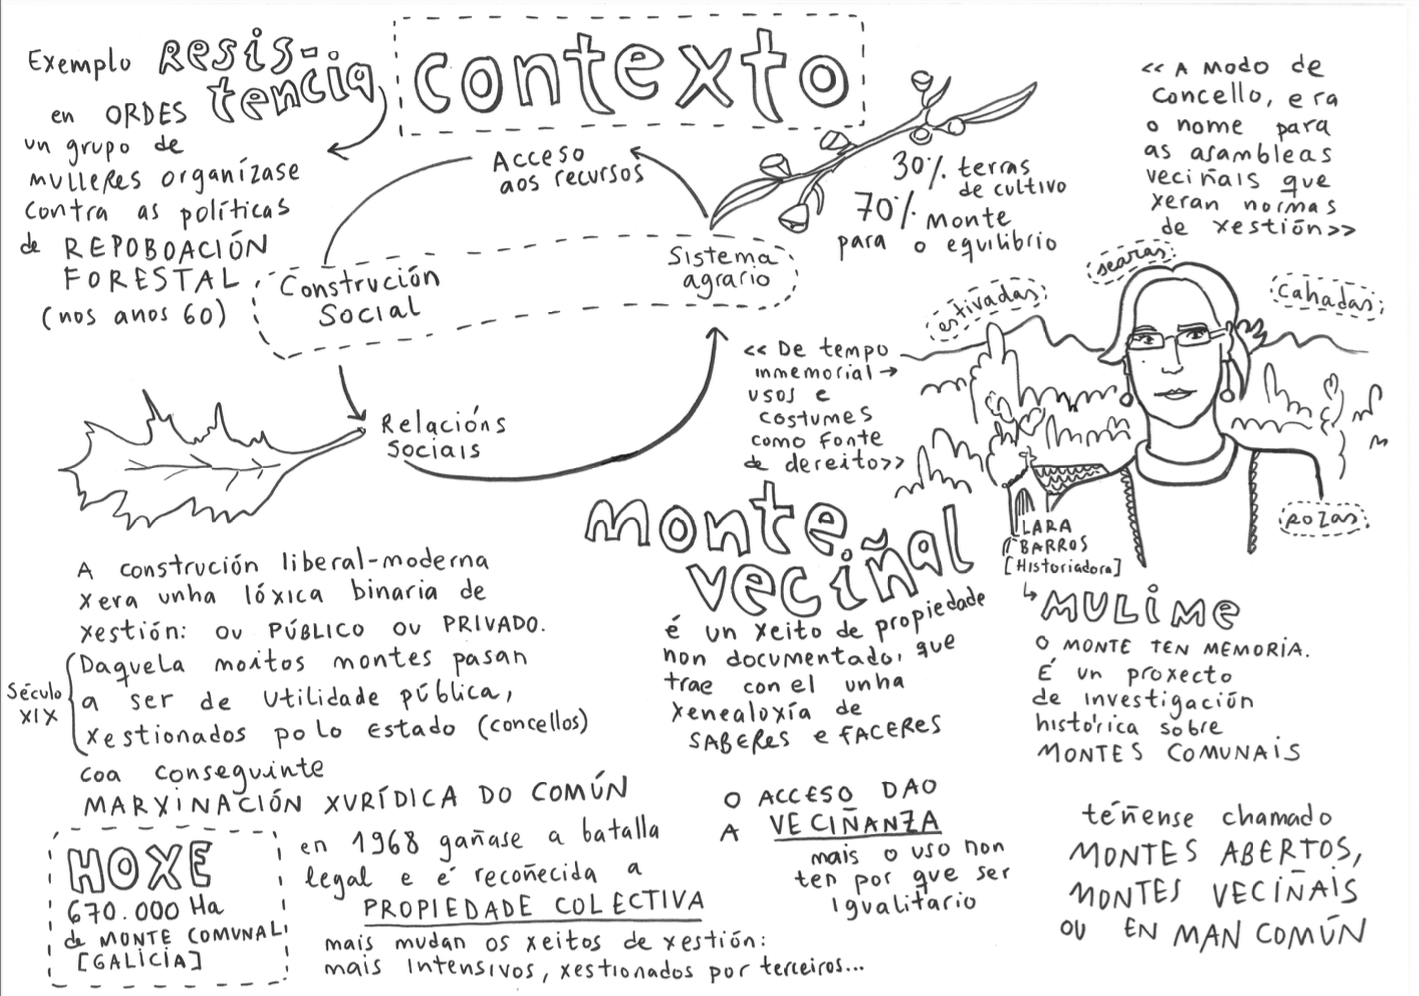 contexto
Exemplo Resis-
tencia
en ORDES
un grupo de
mulleres organízase
contra as políticas
de REPOBOACIÓN
FORESTAL
(nos anos 60)
Acceso
aos recursos
Construción
Social
Sistema
agrario
Relacións
Sociais
30% terras
de cultivo
70% monte
para o equilibrio
<< A modo de
concello, era
o nome para
as asambleas
veciñais que
xeran normas
de xestión>>
estivadas
searas
cahadas
rozas
<< De tempo
inmemorial →
usos e
costumes
como fonte
de dereito>>
LARA
BARROS
[Historiadora]
MULIME
O MONTE TEN MEMORIA.
É un proxecto
de investigación
histórica sobre
MONTES COMUNAIS
monte
veciñal
é un xeito de propiedade
non documentado, que
trae con el unha
xenealoxía de
SABERES e FACERES
A construción liberal-moderna
xera unha lóxica binaria de
xestión: ou PÚBLICO OU PRIVADO.
Século
XIX
Daquela moitos montes pasan
a ser de utilidade pública,
xestionados polo Estado (concellos)
coa conseguinte
MARXINACIÓN XURÍDICA DO COMÚN
HOXE
670.000 Ha
de MONTE COMUNAL
[GALICIA]
en 1968 gañase a batalla
legal e é recoñecida a
PROPIEDADE COLECTIVA
mais mudan os xeitos de xestión:
mais intensivos, xestionados por terceiros...
O ACCESO DAO
A VECIÑANZA
mais o uso non
ten por que ser
igualitario
téñense chamado
MONTES ABERTOS,
MONTES VECIÑAIS
OU EN MAN COMÚN